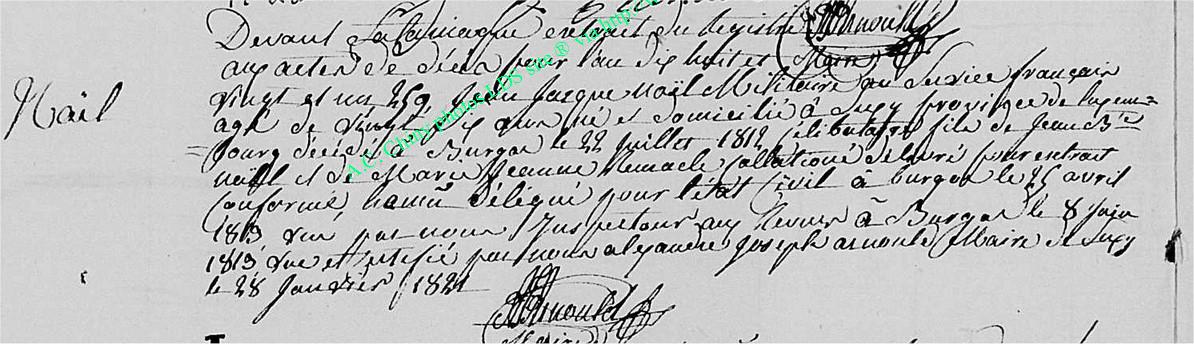 Devant Salamaque extrait du registre
aux actes de décès pour l'an dix huit et
Arnould
Maire
Naël
vingt et un 259, Jean Jacque Noël Militaire au Service français
agé de vingt six ans né et domicilié à Suxy province de luxem=
=bourg décédé à Burgos le 22 juillet 1812 Célibataire fils de Jean Bte
noël et de Marie Jeanne Remacle Collationé délivré pour extrait
Conforme, délégué pour l'état Civil à burgos le 25 avril
1813, vu par nous Inspecteur aux Revues à Burgos le 8 juin
1813, vue et certifié par nous alexandre Joseph arnould Maire de Suxy
le 28 Janvier 1821
Arnould
Maire
A.C. Chiny photos LDS site ® via http